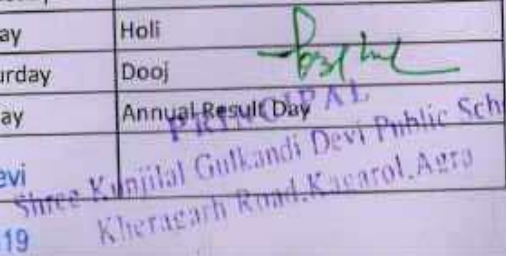 ay Holi
urday Dooj
ay Annual Result Day
PRINCIPAL
evi
Shree Kunjilal Gulkandi Devi Public Sch
Kheragarh Road, Kagarol, Agra
19